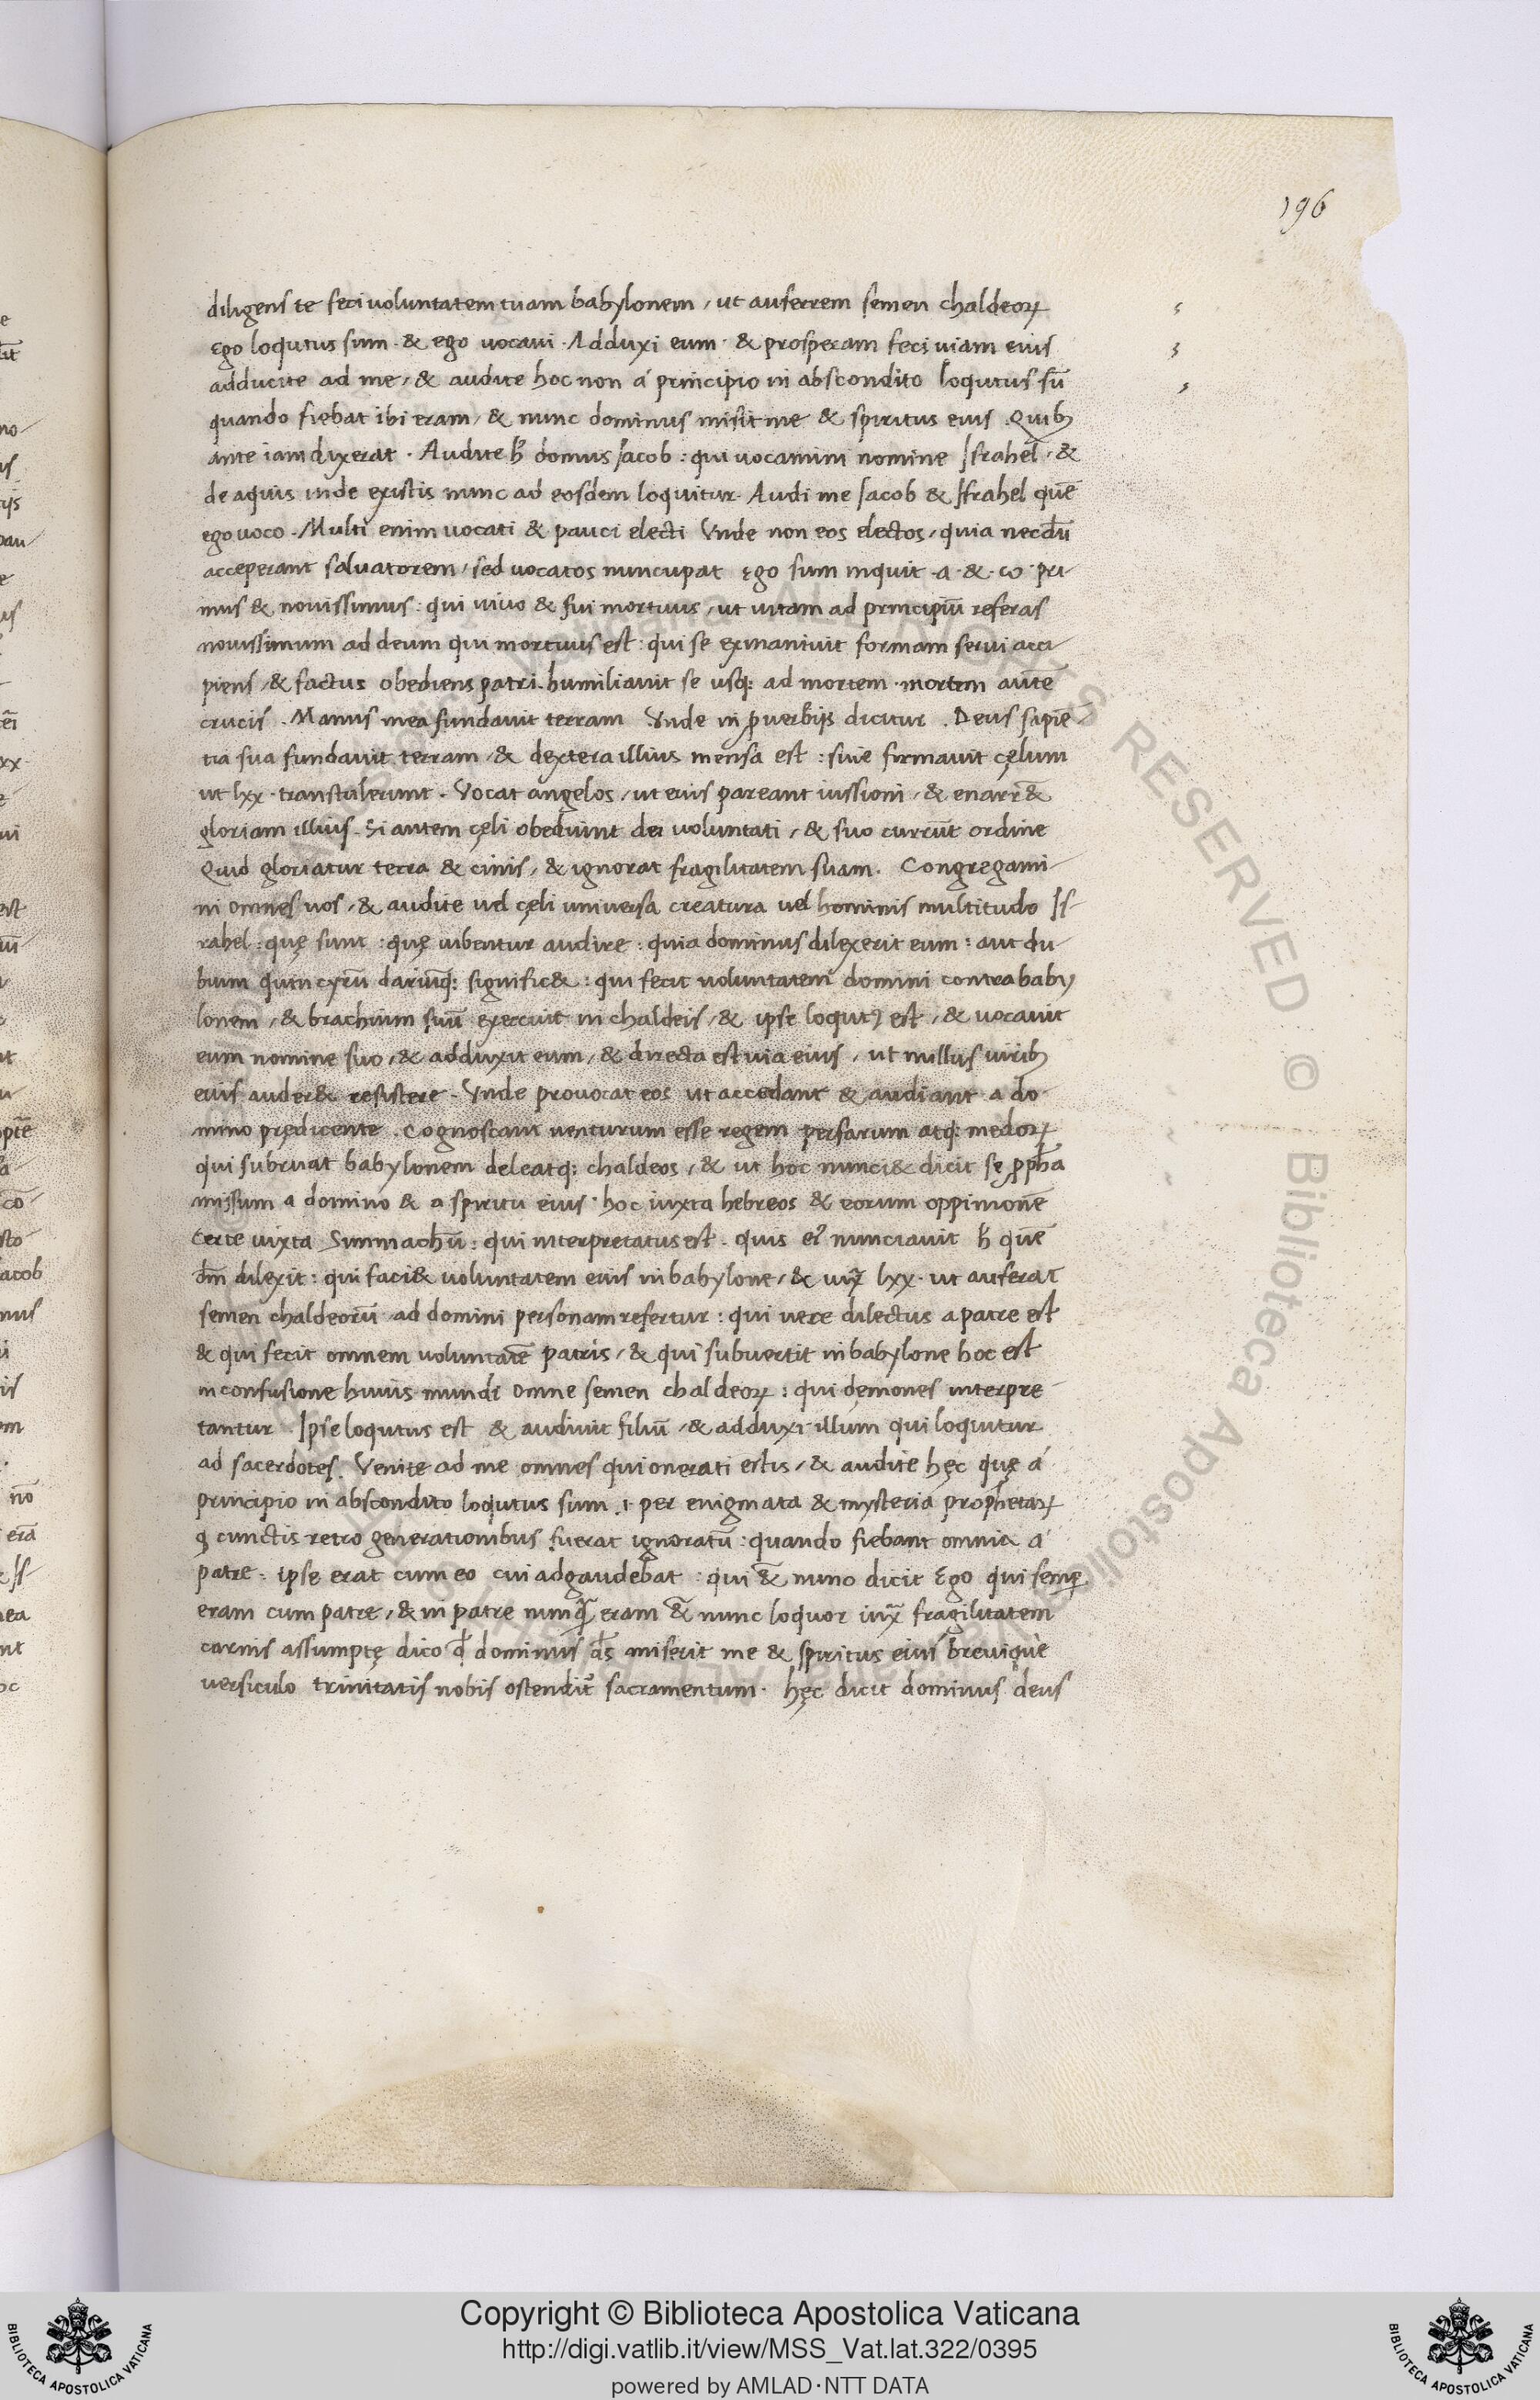 196
diligens te feci voluntatem tuam babylonem, ut auferrem semen chaldeoꝝ
Ego loqutus sum · & ego vocavi · Adduxi eum · & prosperam feci viam eius
adducite ad me, & audite hoc non á principio in abscondito loqutus sū
quando fiebat ibi eram, & nunc dominus misit me & spiritus eius . Quibꝫ
ante iam dixerat . Audite h̵ domus Jacob : qui vocamini nomine Israhel, &
de aquis inde existis nunc ad eosdem loquitur. Audi me Jacob & Israhel quē
ego voco . Multi enim vocati & pauci electi Unde non eos electos, quia necdū
acceperant salvatorem, sed vocatos nuncupat Ego sum inquit ·a· & ·ω· pri-
mus & novissimus : qui vivo & fui mortuus, ut vitam ad principiū referas
novissimum ad deum qui mortuus est : qui se exinanivit formam servi acci-
piens, & factus obediens patri . humiliavit se usqꝫ ad mortem · mortem autē
crucis . Manus mea fundavit terram Unde in ꝓverbijs dicitur . Deus sapiē-
tia sua fundavit terram, & dextera illius mensa est : sive firmavit cęlum
ut lxx · transtulerunt . Vocat angelos, ut eius pareant iussioni, & enarr&
gloriam illius. Si autem cęli obediunt dei voluntati, & suo currūt ordine
Quid gloriatur terra & cinis, & ignorat fragilitatem suam. Congregami-
ni omnes vos, & audite vel cęli universa creatura vel hominis multitudo Is-
rahel : quę sunt : quę iubentur audire : quia dominus dilexerit eum : aut du-
bium quin cyrū dariūqꝫ signific& : qui fecit voluntatem domini contra baby-
lonem, & brachium suū exercuit in chaldeis, & ipse loqutꝰ est, & vocavit
eum nomine suo, & adduxit eum, & directa est via eius, ut nullus viribꝫ
eius auder& resistere . Unde provocat eos ut accedant & audiant a do-
mino prędicente . Cognoscant venturum esse regem persarum atqꝫ medoꝝ
qui subruat babylonem deleatqꝫ chaldeos, & ut hoc nunci& dicit sę ꝓpħa
missum a domino & a spiritu eius · hoc iuxta hebreos & eorum oppinionē
Certe iuxta Simmachū : qui interpretatus est . quis eꝰ nunciavit h̵ quē
dm̄ dilexit : qui faci& voluntatem eius in babylone, & iuxͣ lxx · ut auferat
semen chaldeorū ad domini personam refertur : qui vere dilectus a patre est
& qui fecit omnem voluntatē patris, & qui subvertit in babylone hoc est
in confusione huius mundi omne semen chaldeoꝝ : qui dęmones interpre-
tantur . Ipse loqutus est & audivit filiū, & adduxi illum qui loquitur
ad sacerdotes. Venite ad me omnes qui onerati estis, & audite hęc quę á
principio in abscondito loqutus sum .i. per enigmata & mysteria prophetaꝝ
ꝗ cunctis retro generationibus fuerat ignoratū : quando fiebant omnia á
patre : ipse erat cum eo cui adgaudebat : qui &̄ nunc dicit Ego qui semꝑ
eram cum patre, & in patre nunqͣ̄ eram &̄ nunc loquor iuxͣ fragilitatem
carnis assumptę dico qđ dominus ds̄ miserit me & spiritus eius brevique
versiculo trinitatis nobis ostendit̄ sacramentum . hęc dicit dominus deus
Copyright © Biblioteca Apostolica Vaticana
http://digi.vatlib.it/view/MSS_Vat.lat.322/0395
powered by AMLAD·NTT DATA
BIBLIOTECA APOSTOLICA VATICANA
BIBLIOTECA APOSTOLICA VATICANA